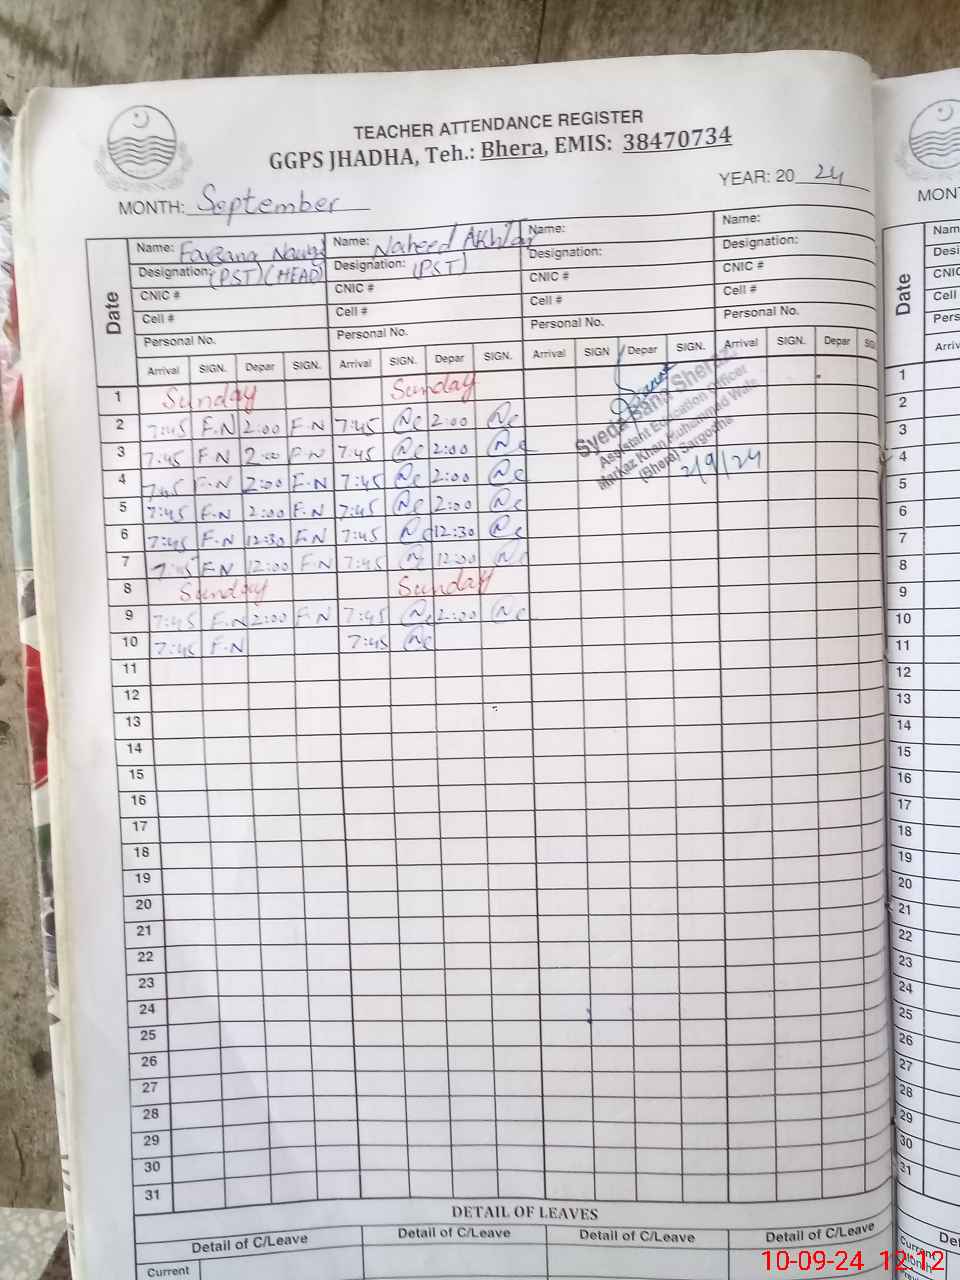 TEACHER ATTENDANCE REGISTER
GGPS JHADHA, Teh.: Bhera, EMIS: 38470734
MONTH: September YEAR: 20 24
Name: Farzana Name: Naheed Akhtar Name: Name:
Designation: (PST) (HEAD) Designation: (PST) Designation: Designation:
CNIC # CNIC # CNIC # CNIC #
Cell # Cell # Cell # Cell #
Personal No. Personal No. Personal No. Personal No.
Date
Arrival SIGN. Depar SIGN. Arrival SIGN. Depar SIGN. Arrival SIGN Depar SIGN. Arrival SIGN. Depar
1 Sunday Sunday
2 7:45 F.N 2:00 F.N 7:45 2:00
3 7:45 F.N 2:00 F.N 7:45 2:00
4 7:45 F.N 2:00 F.N 7:45 2:00
5 7:45 F.N 2:00 F.N 7:45 2:00
6 7:45 F.N 12:30 F.N 7:45 12:30
7 7:45 F.N 12:00 F.N 7:45 12:00
8 Sunday Sunday
9 7:45 F.N 2:00 F.N 7:45 2:00
10 7:45 F.N 7:45
Assistant Education Officer
Markaz Khan Muhammad Wala
(Bhera) Sargodha
2/9/24
11
12
13
14
15
16
17
18
19
20
21
22
23
24
25
26
27
28
29
30
31
DETAIL OF LEAVES
Detail of C/Leave Detail of C/Leave Detail of C/Leave Detail of C/Leave
Current
Date
CNIC
Cell
1
2
3
4
5
6
7
8
9
10
11
12
13
14
15
16
17
18
19
20
21
22
23
24
25
26
27
28
29
30
31
10-09-24 12:12